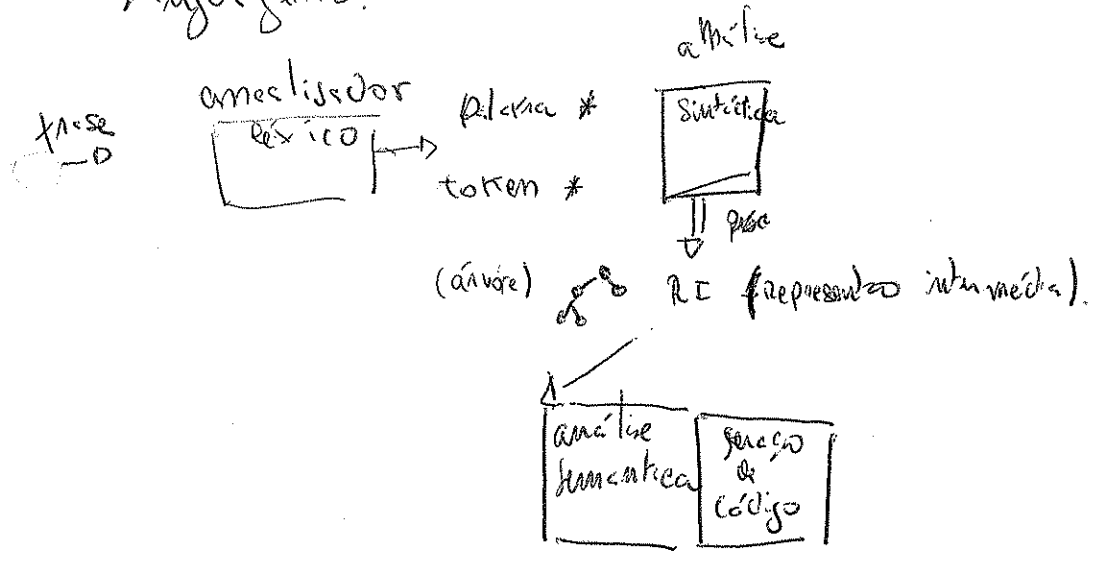 frase
analisador
léxico
palavra *
token *
análise
Sintática
(árvore)
RI (representação intermédia).
análise
Semantica
geração
de
código